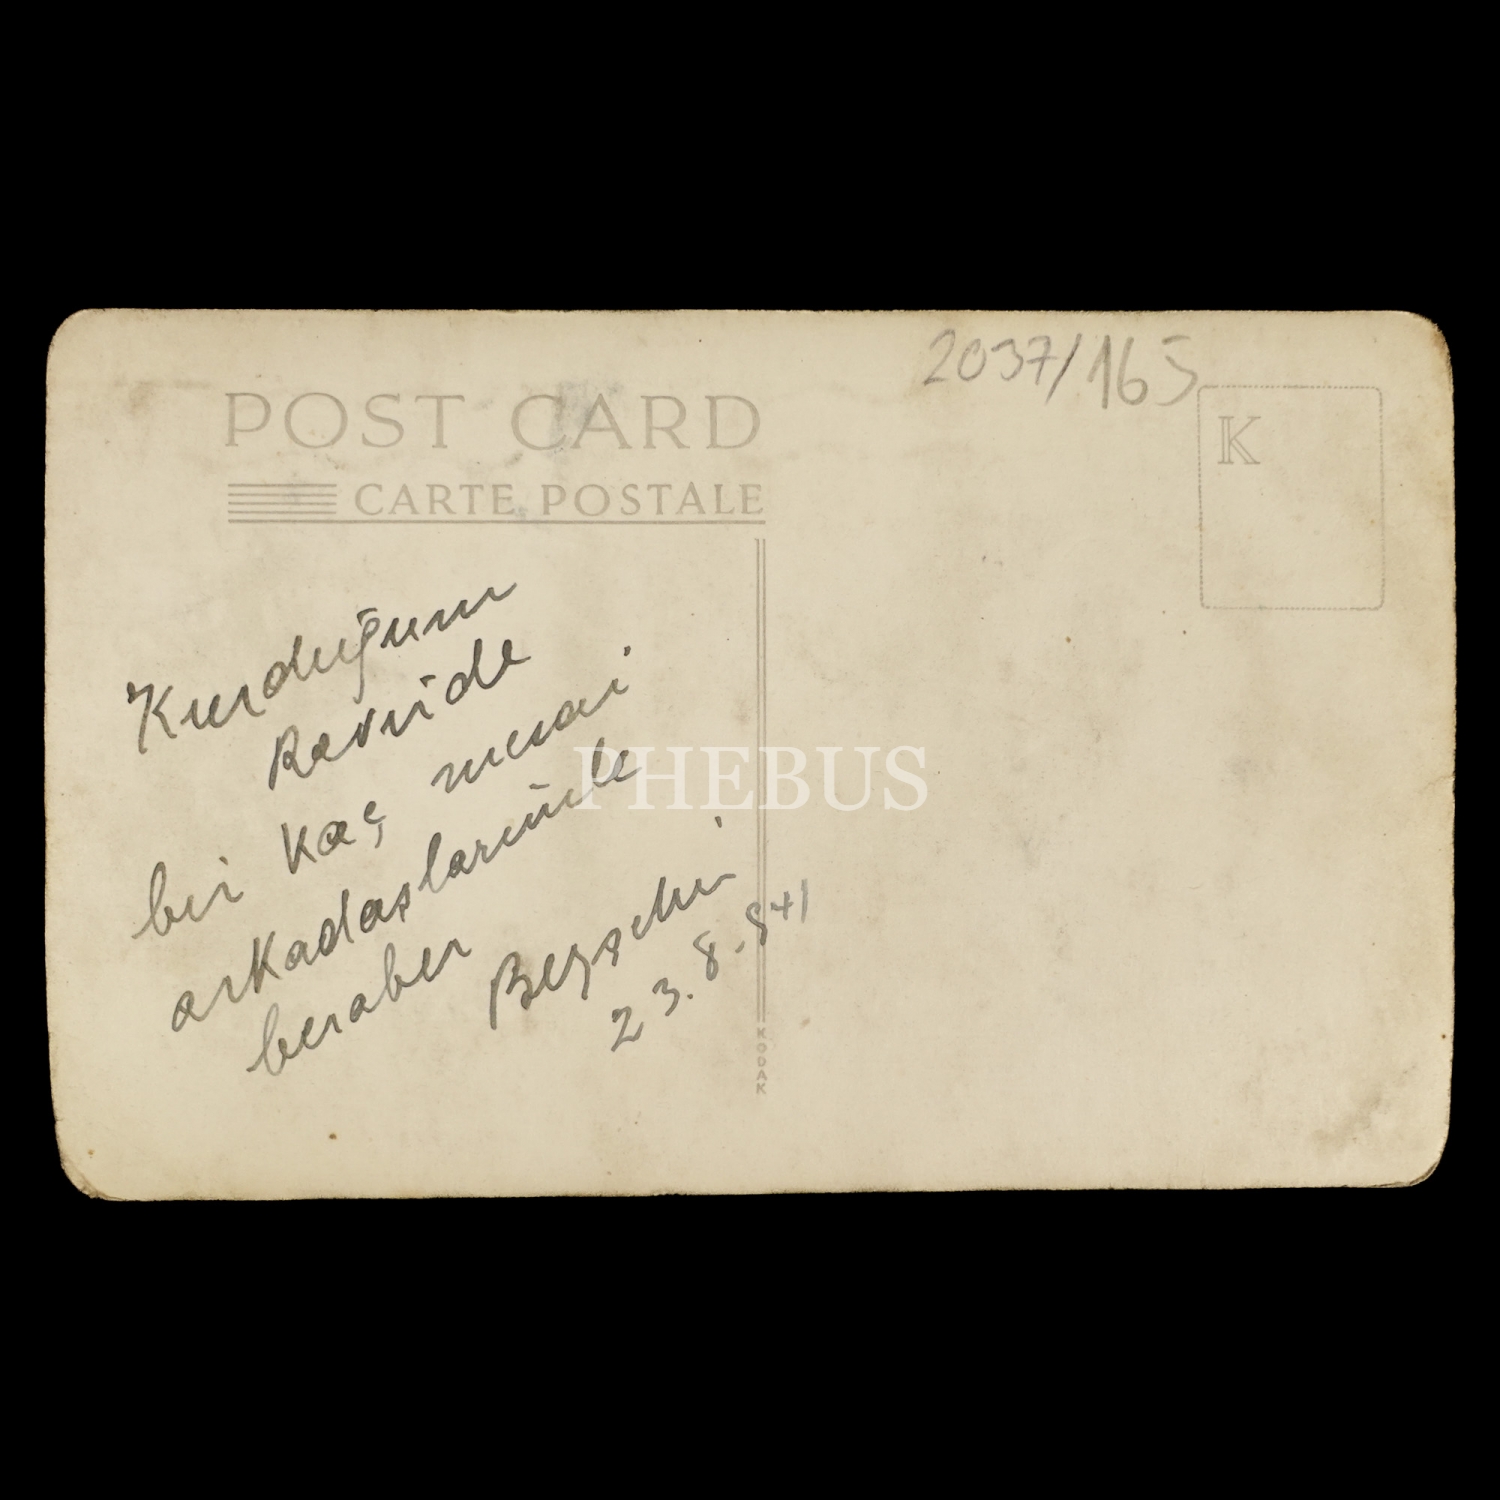 2037/165
POST CARD
CARTE POSTALE
K
Kurduğum
Revüde
bir kaç mesai
arkadaşlarımle
beraber
Beyşehir
23.8.941
KODAK
PHEBUS